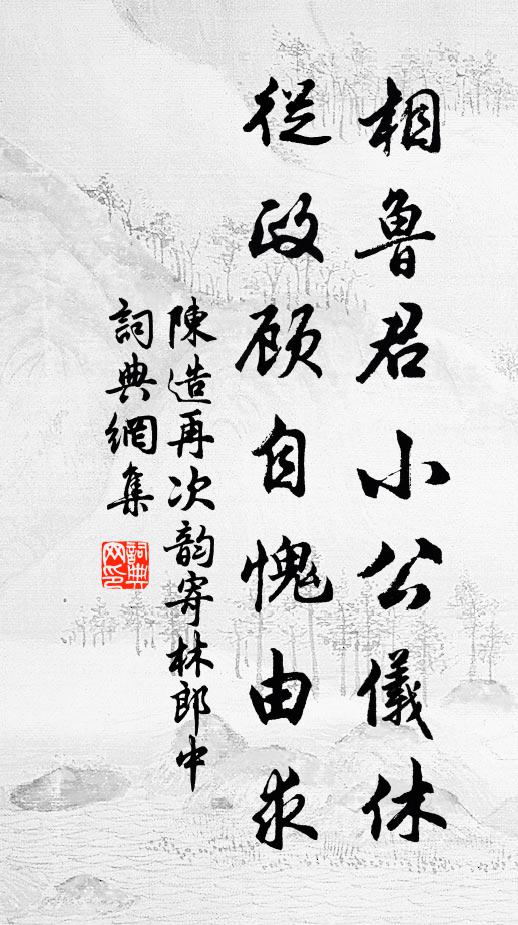 相魯君小公儀休
從政顾自愧由求
陳造再次韵寄林郎中
詞典網集
詞典
网印